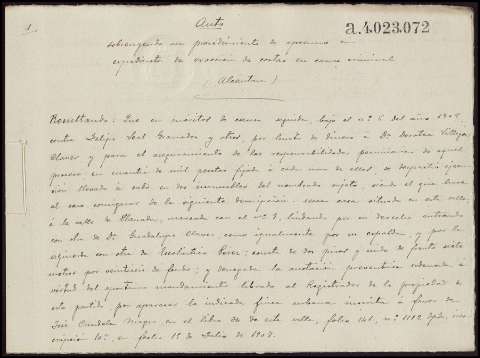 1.
a.4.023.072
Auto
sobreseyendo un procedimiento de apremio en
expediente de exaccion de costas en causa criminal
(Alcantara)
Resultando: Que en méritos de causa seguida, bajo el nº 6 del año 1909,
contra Felipe Leal Granados y otros, por hurto de dinero á Dª Dorotea Villegas
Claver y para el aseguramiento de las responsabilidades pecuniarias de aquel
proceso, en cuantia de mil pesetas fijada á cada uno de ellos, se despachó ejecu-
ción llevada á cabo en dos inmuebles del nombrado sujeto, siendo el que hace
al caso consignar de la siguiente descripción: una casa situada en esta villa,
á la calle de, marcada con el nº 8, lindando por su derecha entrando
con otra de Dª Guadalupe Claver, como igualmente por su espalda, y por la
izquierda con otra de Escolástica Perez; consta de dos pisos y mide de frente siete
metros por veinticinco de fondo; y denegada la anotación preventiva ordenada á
virtud del oportuno mandamiento librado al Registrador de la propiedad de
este partido por aparecer la indicada finca urbana inscrita á favor de
José, en el libro 30 de esta villa, folio 161, nº 1102 dpdo, ins-
cripción 10ª, en fecha 1º de Julio de 1907.